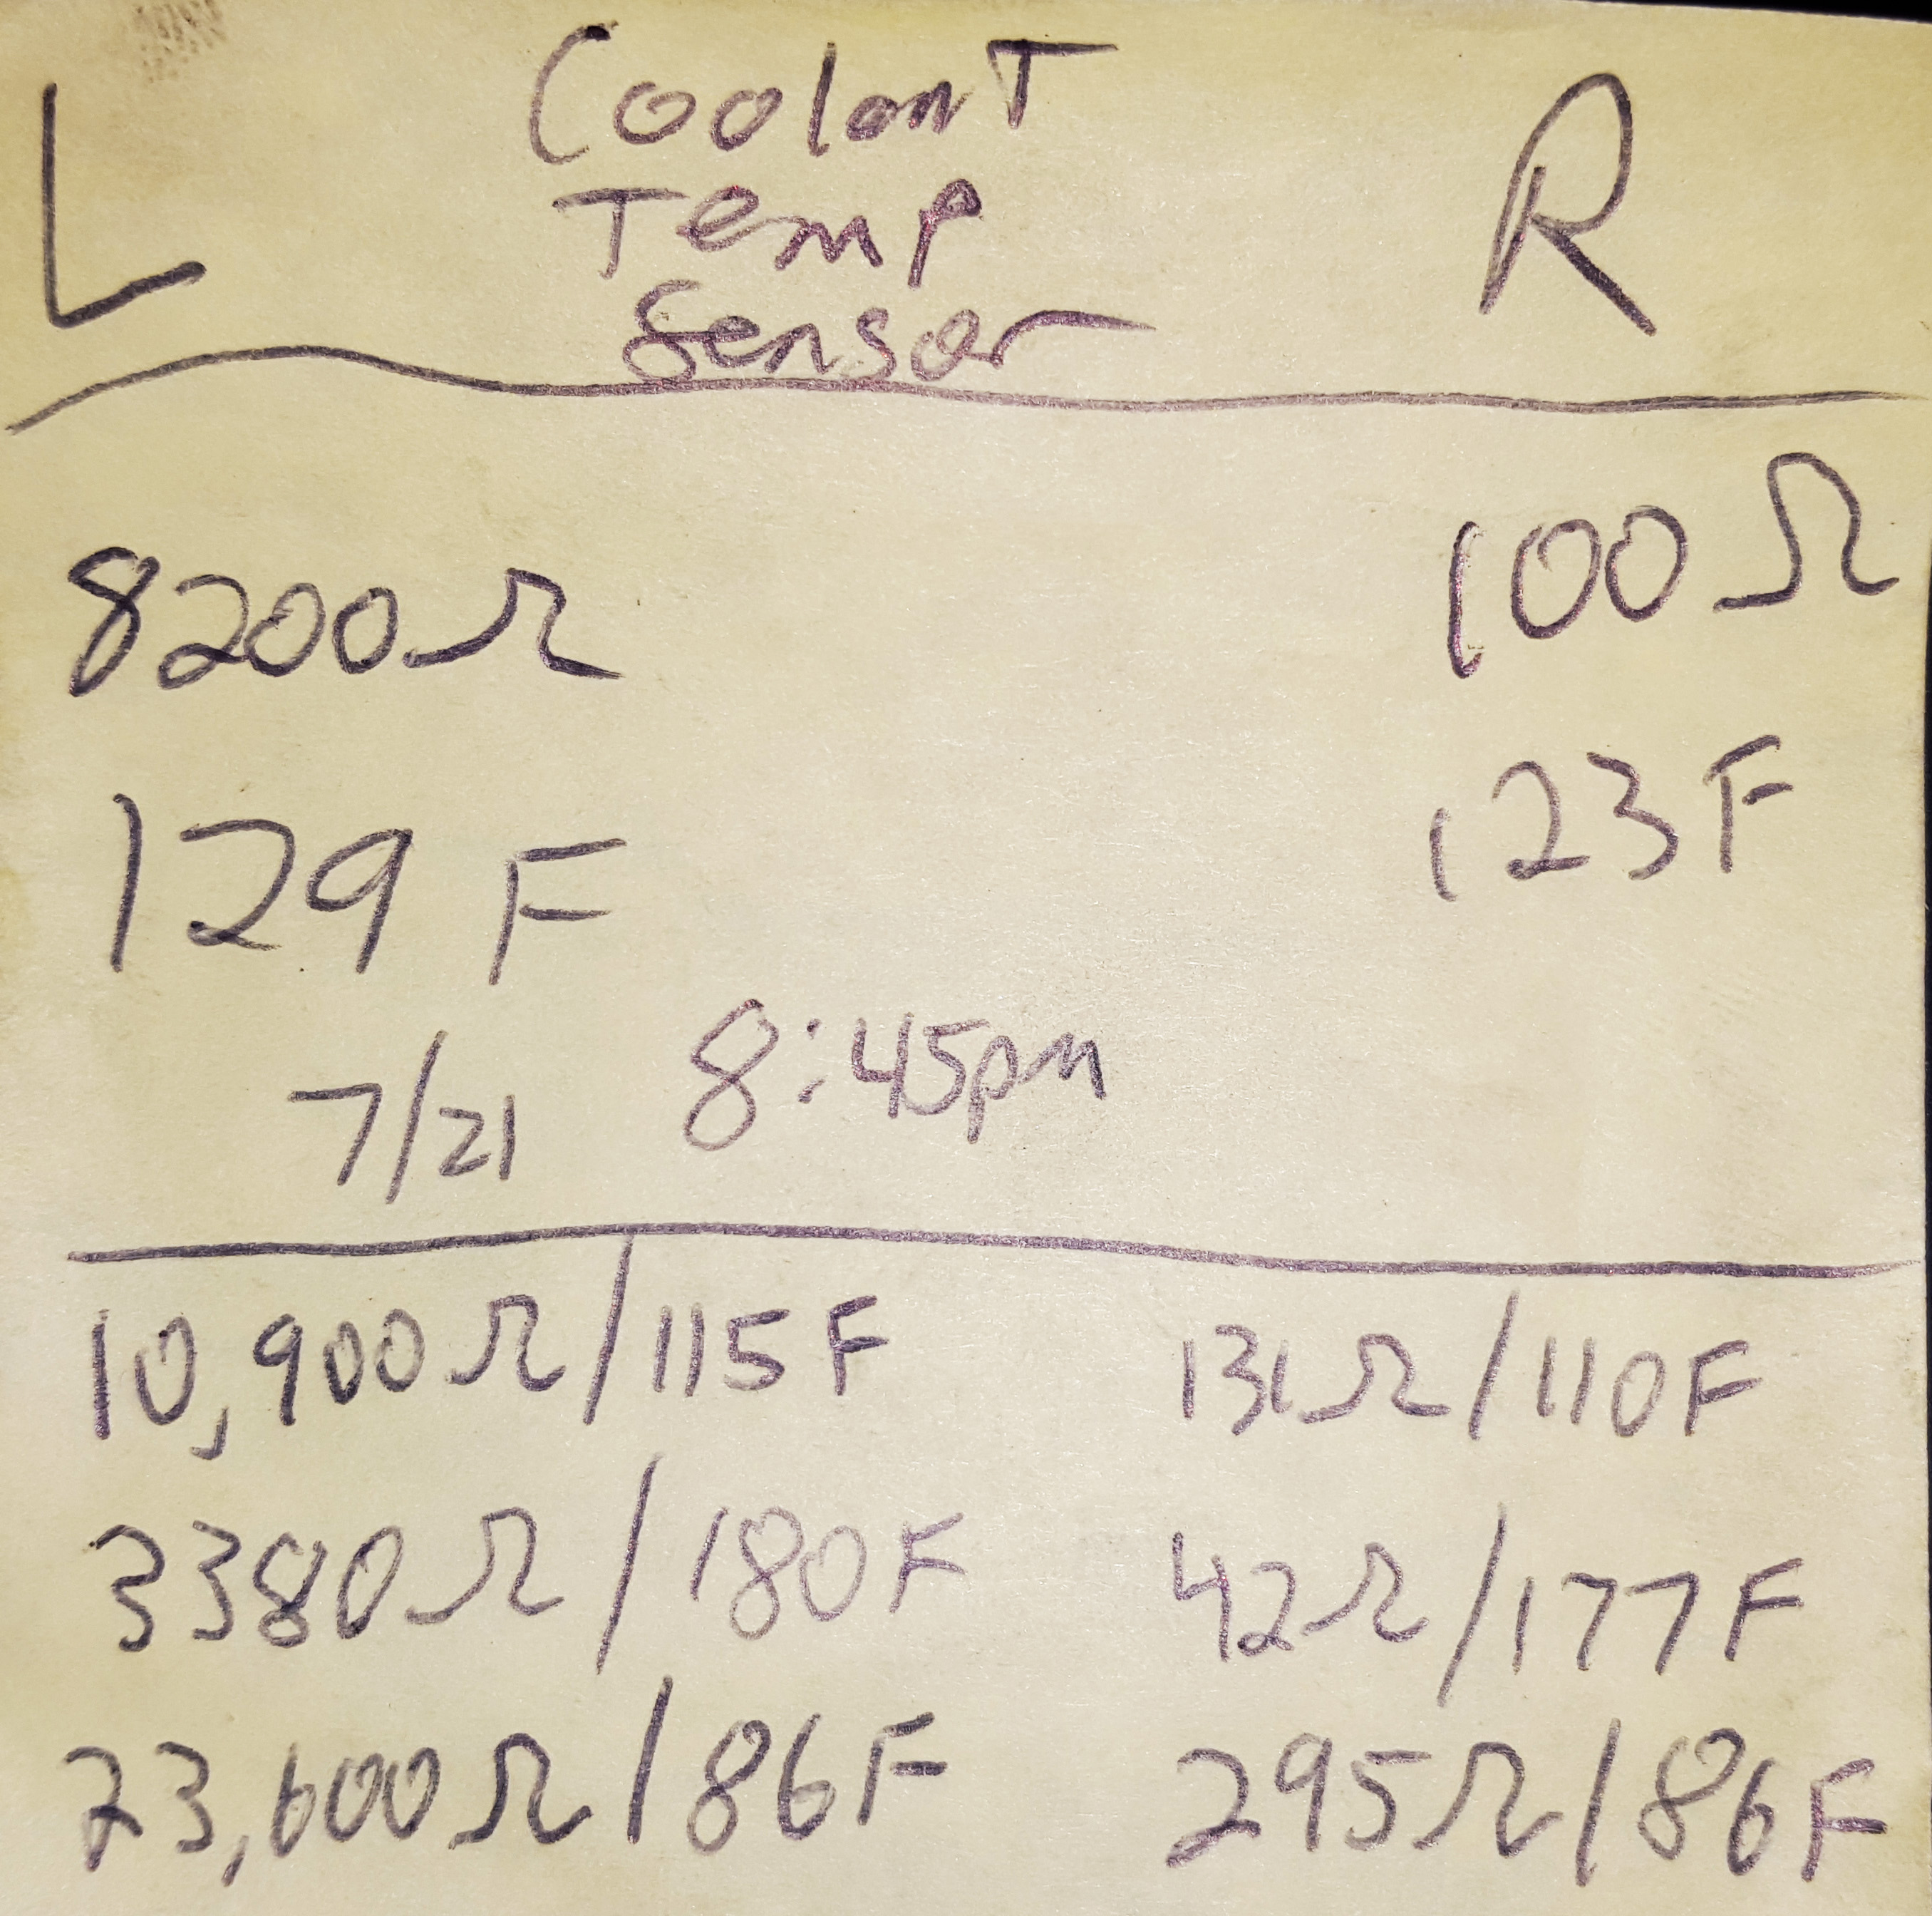 L Coolant R
Temp
Sensor
8200Ω 100Ω
129 F 123F
7/21 8:45pm
10,900Ω/115F 131Ω/110F
3380Ω/180F 42Ω/177F
23,600Ω/86F 295Ω/86F